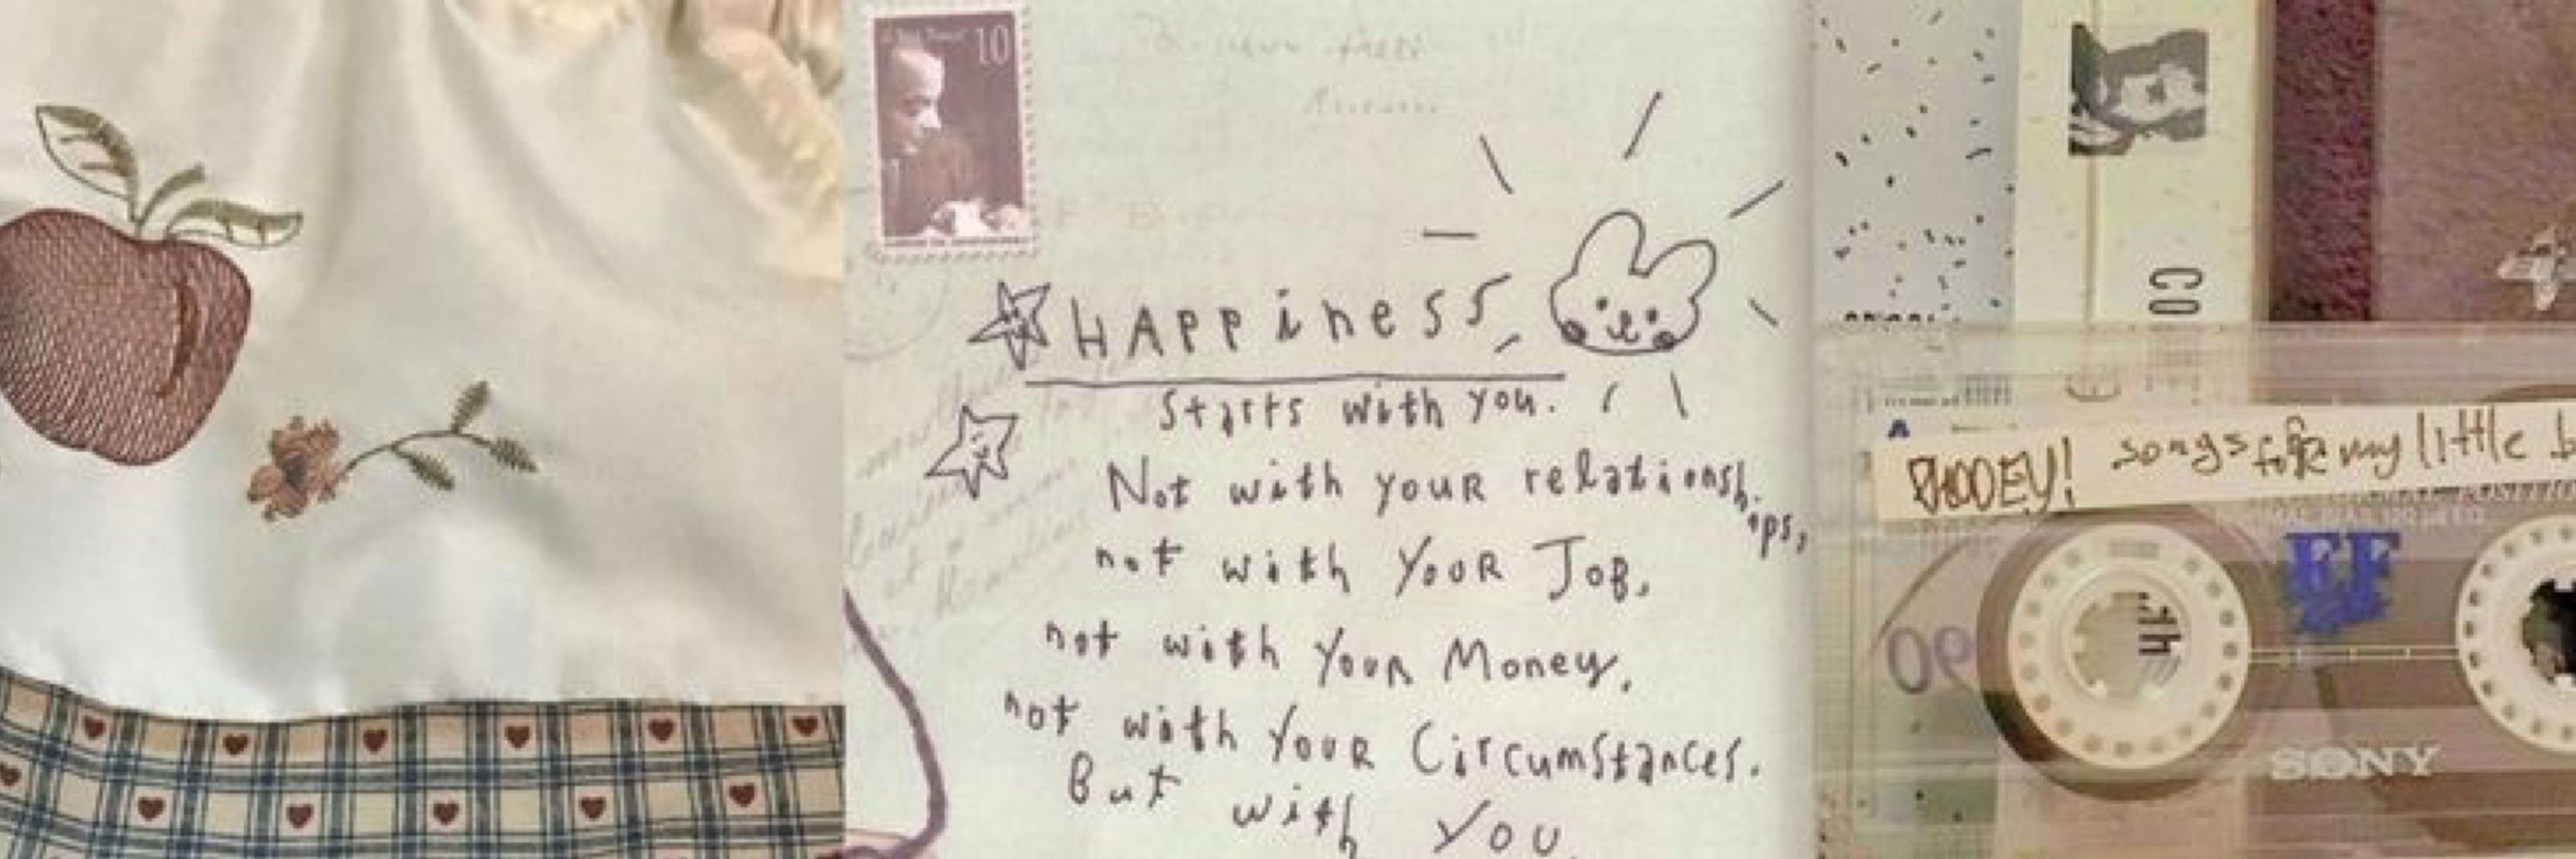 10
HAPPiness
Starts with you.
Not with your relationships,
not with YOUR JOB,
not with Your Money,
not with Your Circumstances.
But with You.
CO
A
PHOOEY! songs for my little b
EF
90
SONY